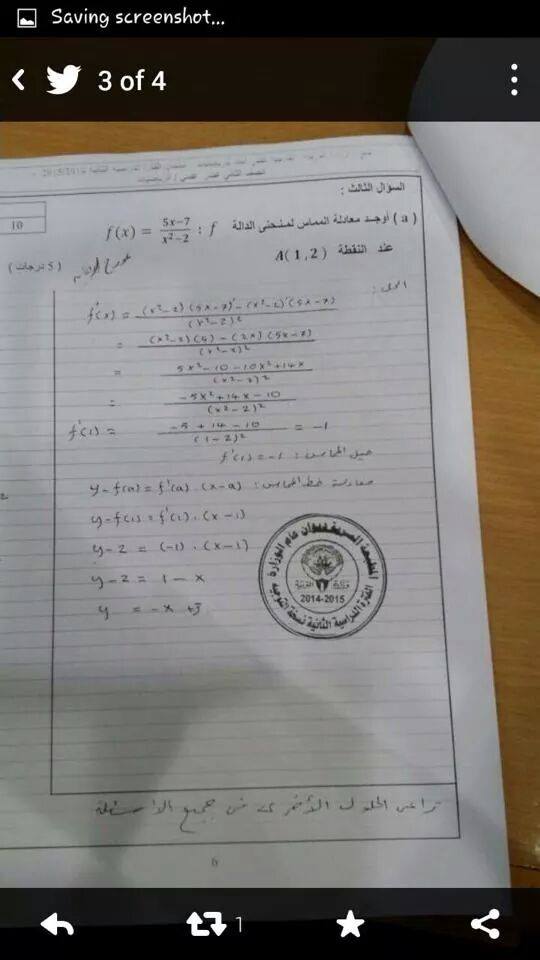 Saving screenshot...
3 of 4
10
السؤال الثالث :
( a ) أوجد معادلة المماس لمنحنى الدالة f : f(x) = \frac{5x-7}{x²-2}
عند النقطة A(1,2)
( 5 درجات )
الحل :
f'(x) = \frac{(x²-2)(5x-7)' - (x²-2)'(5x-7)}{(x²-2)²}
= \frac{(x²-2)(5) - (2x)(5x-7)}{(x²-2)²}
= \frac{5x²-10-10x²+14x}{(x²-2)²}
= \frac{-5x²+14x-10}{(x²-2)²}
f'(1) = \frac{-5+14-10}{(1-2)²} = -1
ميل المماس : f'(1) = -1
معادلة خط المماس : y-f(a) = f'(a).(x-a)
y-f(1) = f'(1).(x-1)
y-2 = (-1).(x-1)
y-2 = 1-x
y = -x+3
المطبعة السرية ديوان عام الوزارة
وزارة التربية
2014-2015
الفترة الدراسية الثانية نسخة
تراعى الحلول الأخرى في جميع الأسئلة
6
1